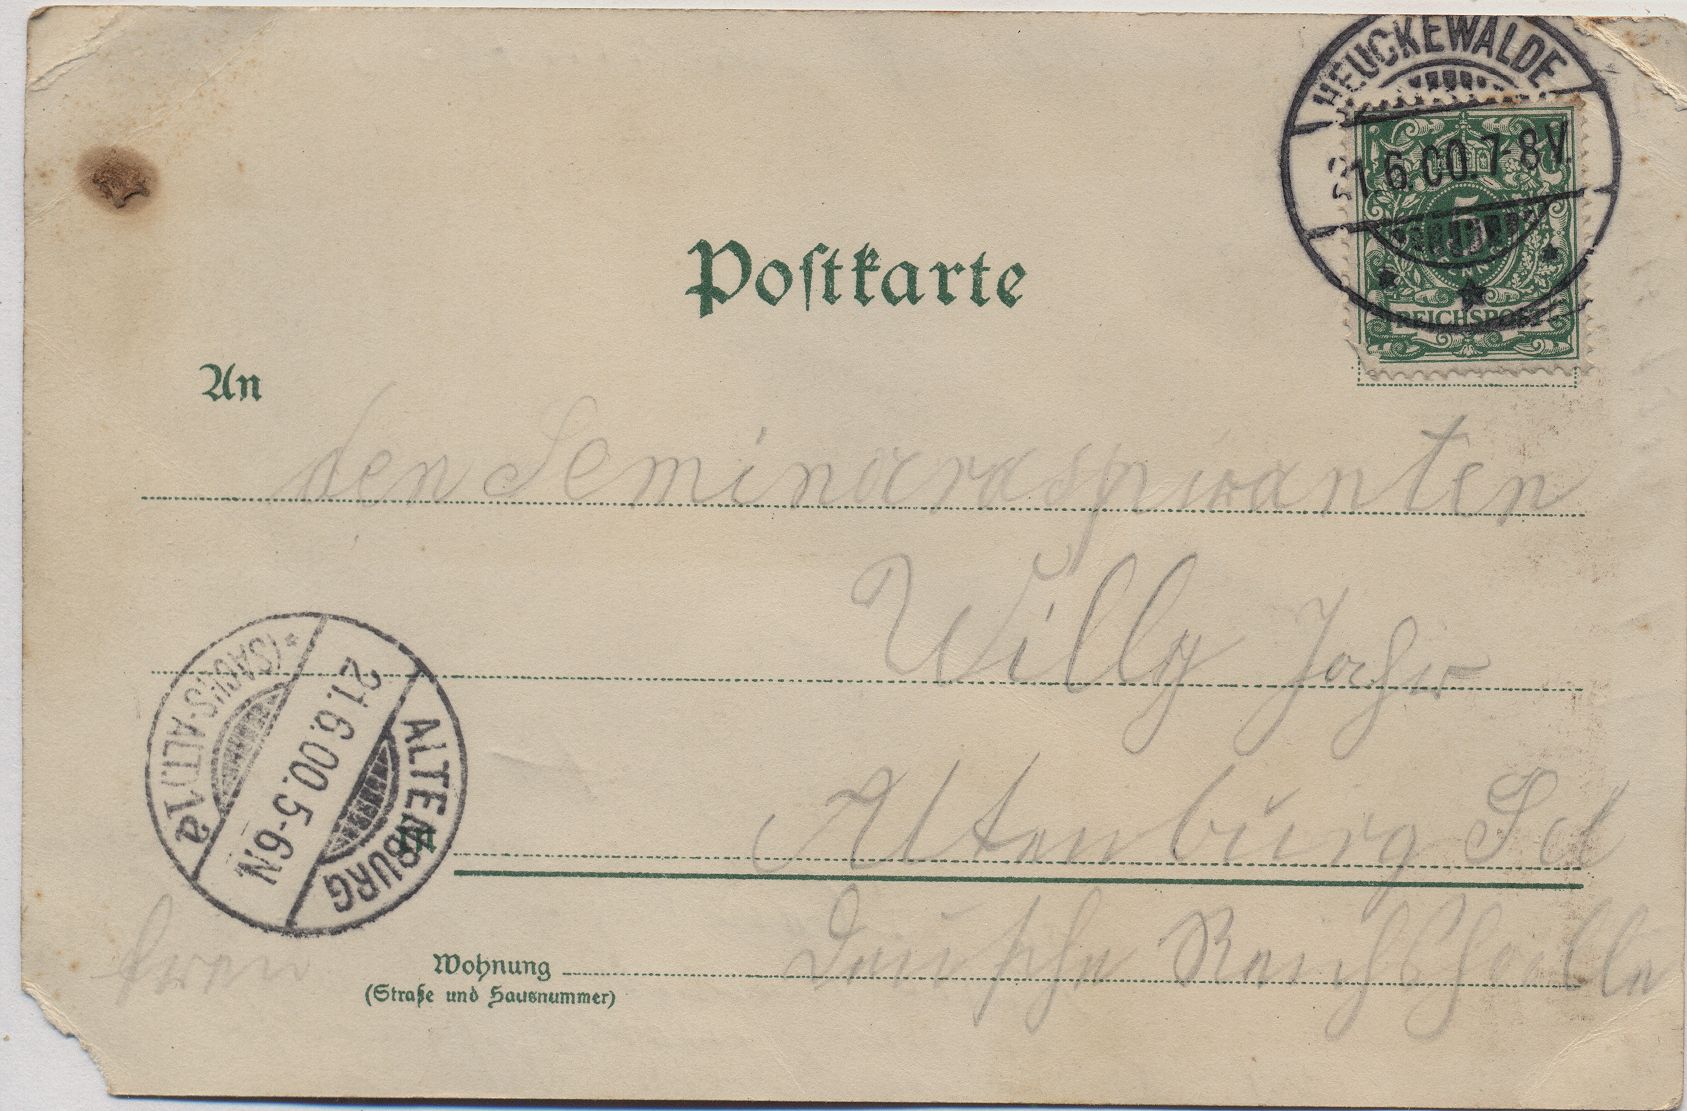 HEUCKEWALDE
21.6.00.7-8V.
5
REICHSPOST
Postkarte
An
den Seminaraspiranten
Willy
Altenburg
ALTENBURG
21.6.00.5-6N
(SACHS-ALT.) 1a
in
Deutsche Reichshalle
Wohnung
(Straße und Hausnummer)